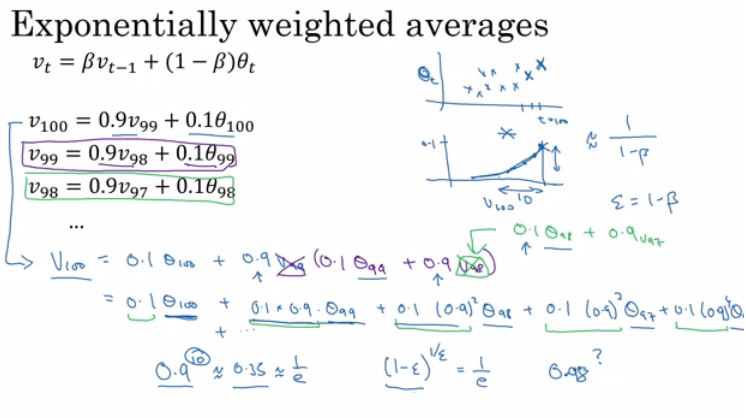 Exponentially weighted averages
v_t = βv_{t−1} + (1 − β)θ_t
v_100 = 0.9v_99 + 0.1θ_100
v_99 = 0.9v_98 + 0.1θ_99
v_98 = 0.9v_97 + 0.1θ_98
...
θ_t
t=100
0.1
V_100
10
≈ 1/(1-β)
ε = 1-β
0.1 θ_98 + 0.9 v_97
V_100 = 0.1 θ_100 + 0.9 (0.1 θ_99 + 0.9 v_98)
= 0.1 θ_100 + 0.1 × 0.9 · θ_99 + 0.1 (0.9)² θ_98 + 0.1 (0.9)³ θ_97 + 0.1 (0.9)⁴ θ
+ ...
0.9^10 ≈ 0.35 ≈ 1/e (1-ε)^{1/ε} = 1/e 0.98^?